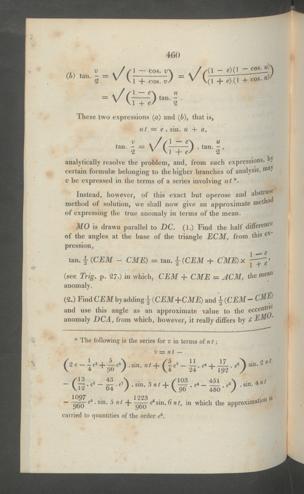 460
(b) tan. v/2 = √((1 − cos. v)/(1 + cos. v)) = √((1 − e)(1 − cos. u)/(1 + e)(1 + cos. u))
= √((1 − e)/(1 + e)) tan. u/2.
These two expressions (a) and (b), that is,
nt = e . sin. u + u,
tan. v/2 = √((1 − e)/(1 + e)) . tan. u/2,
analytically resolve the problem, and, from such expressions, by
certain formulæ belonging to the higher branches of analysis, may
v be expressed in the terms of a series involving nt*.
Instead, however, of this exact but operose and abstruse
method of solution, we shall now give an approximate method
of expressing the true anomaly in terms of the mean.
MO is drawn parallel to DC. (1.) Find the half difference
of the angles at the base of the triangle ECM, from this ex-
pression,
tan. ½ (CEM − CME) = tan. ½ (CEM + CME) × (1 − e)/(1 + e),
(see Trig. p. 27.) in which, CEM + CME = ACM, the mean
anomaly.
(2.) Find CEM by adding ½ (CEM + CME) and ½ (CEM − CME)
and use this angle as an approximate value to the eccentric
anomaly DCA, from which, however, it really differs by ∠ EMO.
* The following is the series for v in terms of nt;
v = nt −
(2e − 1/4 e³ + 5/96 e⁵) . sin. nt + (5/4 e² − 11/24 . e⁴ + 17/192 . e⁶) sin. 2 nt
− (13/12 . e³ − 43/64 . e⁵) . sin. 3 nt + (103/96 . e⁴ − 451/480 . e⁶) . sin. 4 nt
− 1097/960 e⁵ . sin. 5 nt + 1223/960 e⁶ sin. 6 nt, in which the approximation is
carried to quantities of the order e⁶.